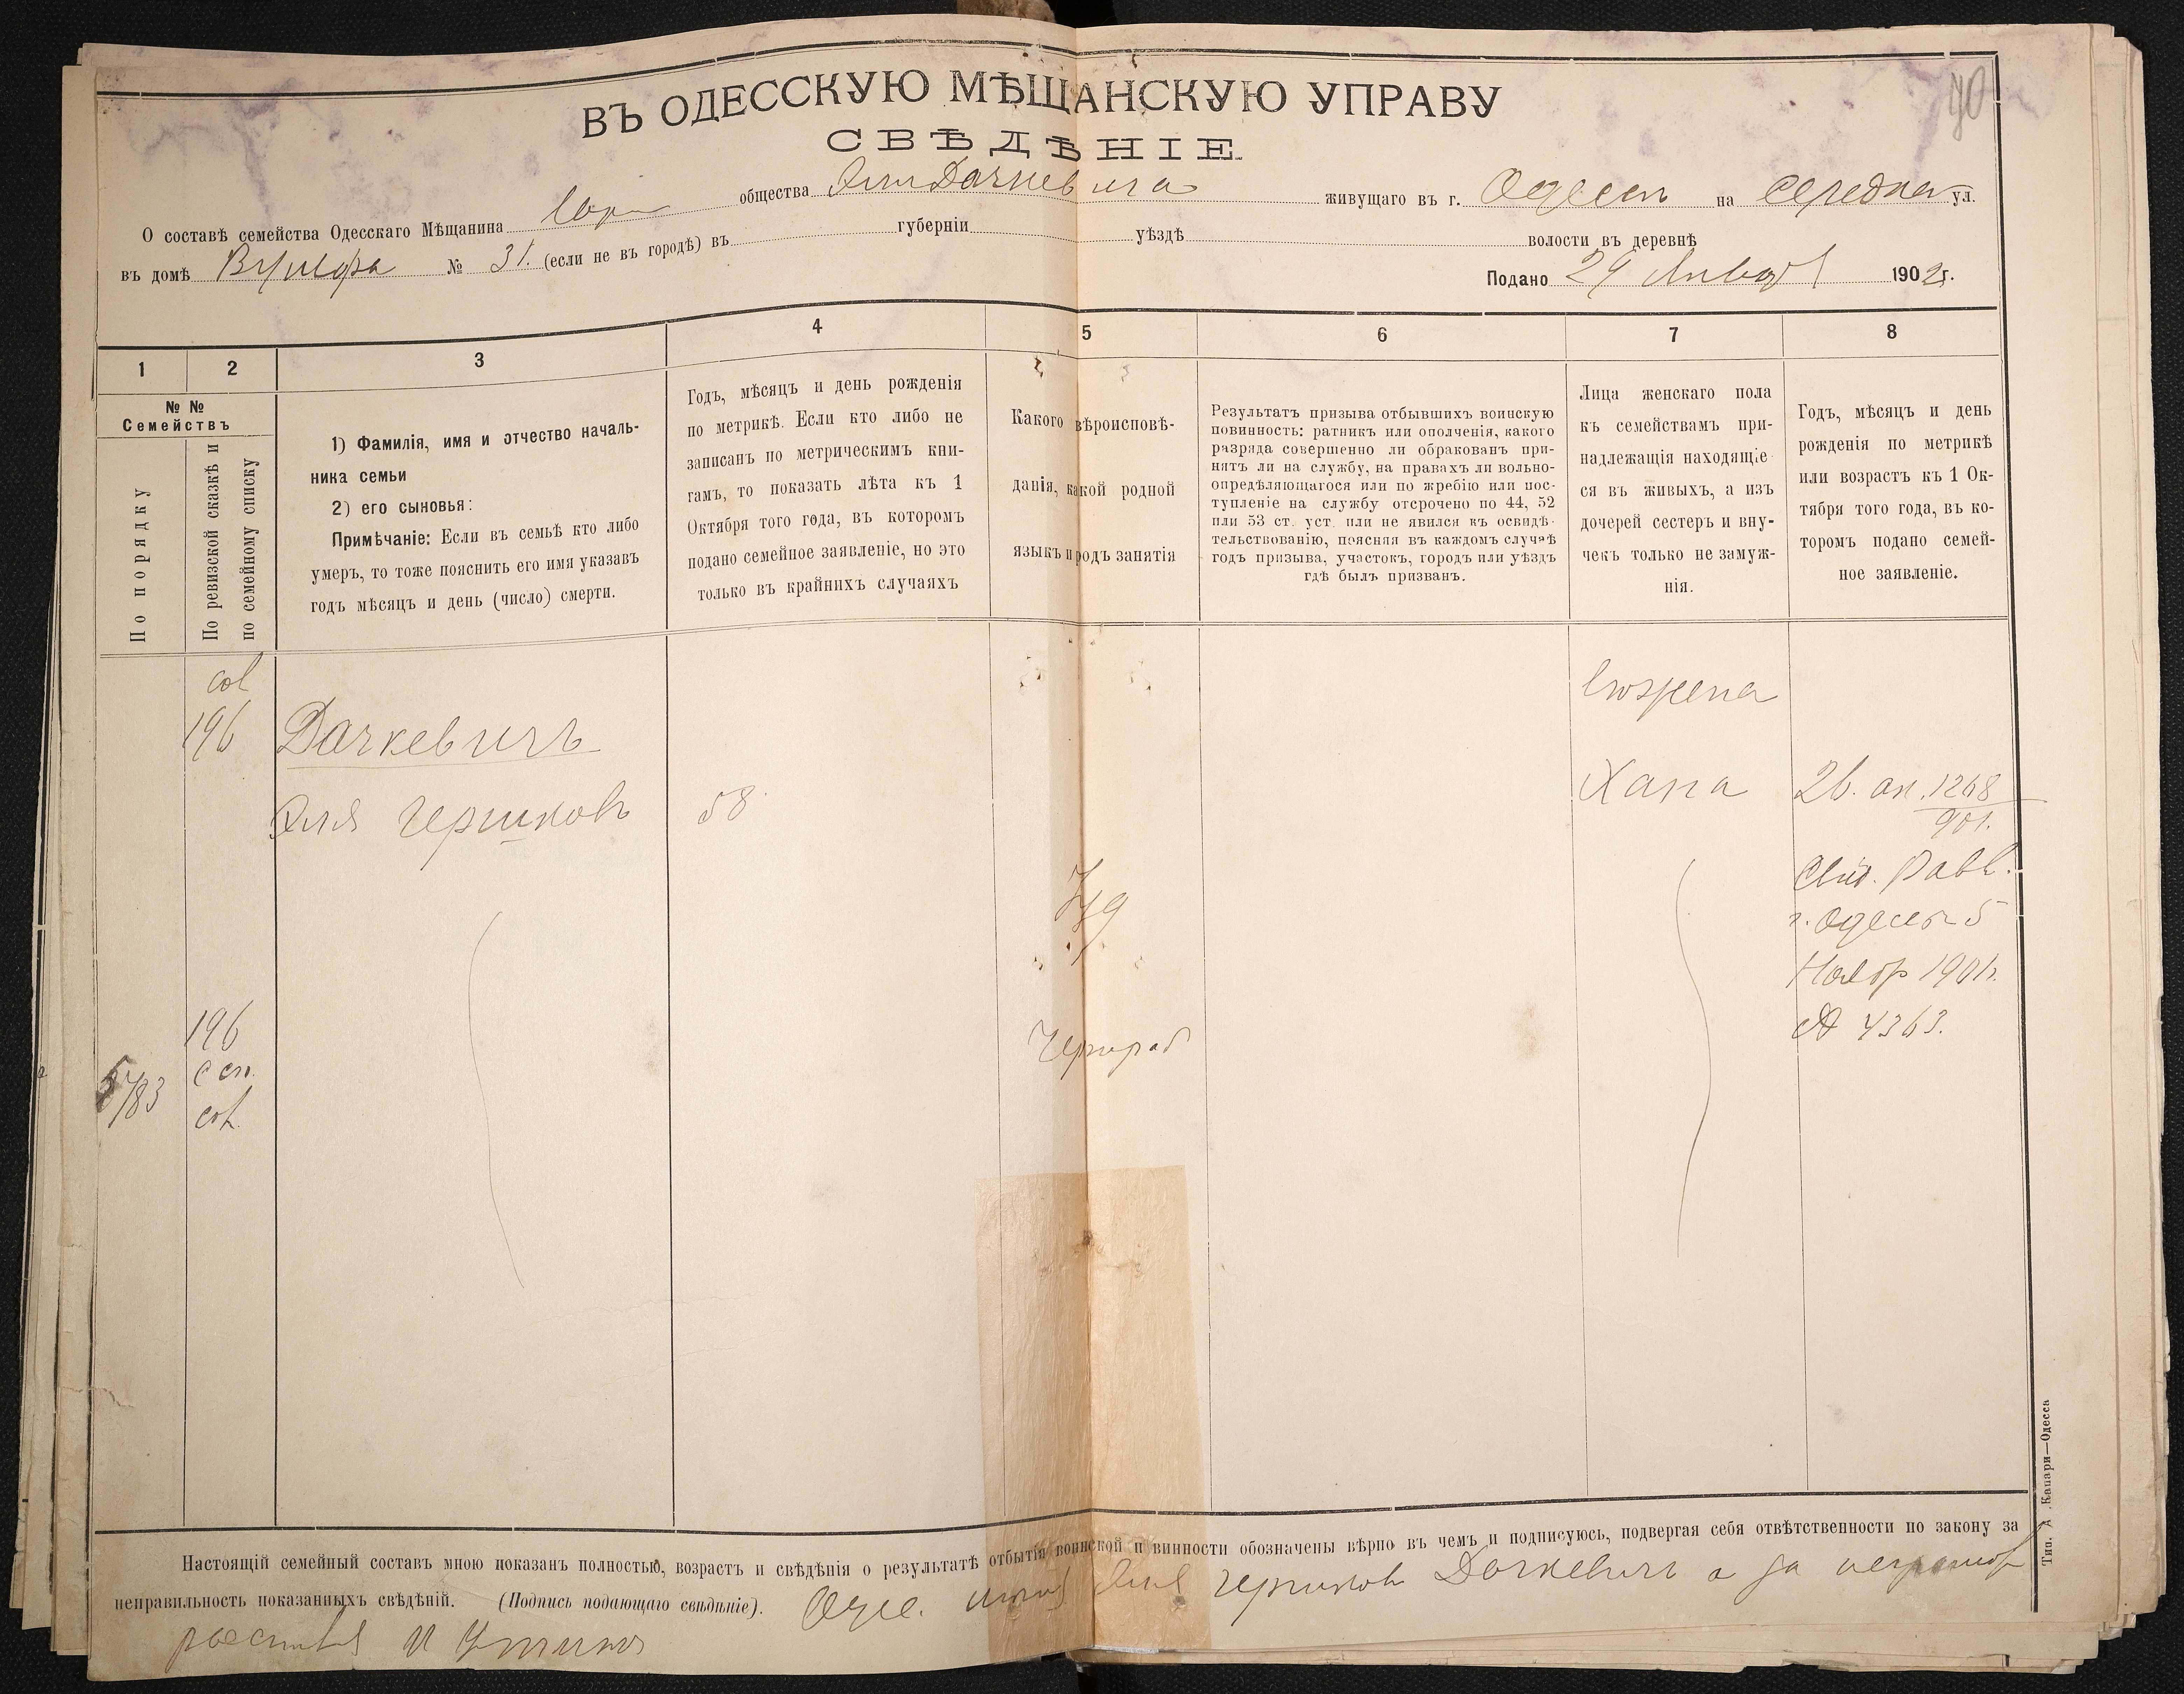 40
ВЪ ОДЕССКУЮ МѢЩАНСКУЮ УПРАВУ
СВѢДѢНІЕ
О составѣ семейства Одесскаго Мѣщанина общества Эли Дачкевича живущаго въ г. Одессѣ на Средней ул.
въ домѣ № 31. (если не въ городѣ) въ губерніи уѣздѣ волости въ деревнѣ
Подано 29 Января 1902г.
1 2 3 4 5 6 7 8
№ №
Семействъ
По порядку
По ревизской сказкѣ и
по семейному списку
1) Фамилія, имя и отчество началь-
ника семьи
2) его сыновья:
Примѣчаніе: Если въ семьѣ кто либо
умеръ, то тоже пояснить его имя указавъ
годъ мѣсяцъ и день (число) смерти.
Годъ, мѣсяцъ и день рожденія
по метрикѣ. Если кто либо не
записанъ по метрическимъ кни-
гамъ, то показать лѣта къ 1
Октября того года, въ которомъ
подано семейное заявленіе, но это
только въ крайнихъ случаяхъ
Какого вѣроисповѣ-
данія, какой родной
языкъ и родъ занятія
Результатъ призыва отбывшихъ воинскую
повинность: ратникъ или ополченія, какого
разряда совершенно ли обракованъ при-
нятъ ли на службу, на правахъ ли вольно-
опредѣляющагося или по жребію или пос-
тупленіе на службу отсрочено по 44, 52
или 53 ст. уст. или не явился къ освидѣ-
тельствованію, поясняя въ каждомъ случаѣ
годъ призыва, участокъ, городъ или уѣздъ
гдѣ былъ призванъ.
Лица женскаго пола
къ семействамъ при-
надлежащія находящіе-
ся въ живыхъ, а изъ
дочерей сестеръ и вну-
чекъ только не замуж-
нія.
Годъ, мѣсяцъ и день
рожденія по метрикѣ
или возрастъ къ 1 Ок-
тября того года, въ ко-
торомъ подано семей-
ное заявленіе.
196
Дачкевичъ
Эля Гершковъ
58
его жена
Хана
26. ап. 1268
901.
Свид. Равв.
г. Одессы 5
Ноябр 1901г.
№ 4363.
Іуд
Чернораб
196
5783
Настоящій семейный составъ мною показанъ полностью, возрастъ и свѣдѣнія о результатѣ отбытія воинской п винности обозначены вѣрно въ чемъ и подписуюсь, подвергая себя отвѣтственности по закону за
неправильность показанныхъ свѣдѣній. (Подпись подающаго свѣдѣніе). Одес. мѣщ Эля Гершковъ Дачкевичъ а за неграмотн
Тип. А. Капари—Одесса